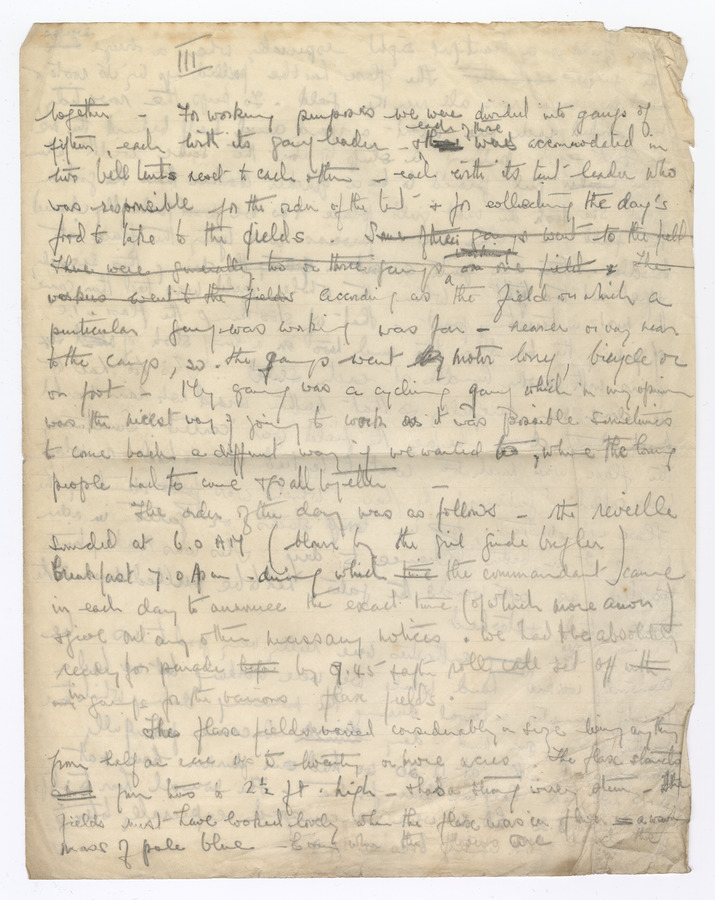 III
together - For working purposes we were divided into gangs of
fifteen, each with its gang leader - each of these was accomodated in
two bell tents next to each other - each with its tent leader who
was responsible for the order of the tent + for collecting the day's
food to take to the fields. Some of these gangs went to the field
There were generally two or three gangs working on one field + The
workers went to the fields according as the field on which a
particular gang was working was far - nearer or very near
to the camp, so the gangs went by motor lorry, bicycle or
on foot - My gang was a cycling gang which in my opinion
was the nicest way of going to work as it was possible sometimes
to come back a different way if we wanted to, where the lorry
people had to come + go all together -
The order of the day was as follows - the reveille
sounded at 6.0 AM (blown by the girl guide bugler)
Breakfast 7.0 Am - during which time the commandant came
in each day to announce the exact time (of which more anon)
+ give out any other necessary notices. We had to be absolutely
ready for parade by 7.45 + after roll call set off with
our in gangs for the various flax fields.
The flax fields varied considerably in size being anything
from half an acre up to twenty or more acres. The flax stands
from two to 2½ ft. high - + has a strong stem - The
fields must have looked lovely when the flax was in flower = a
mass of pale blue - Even when the